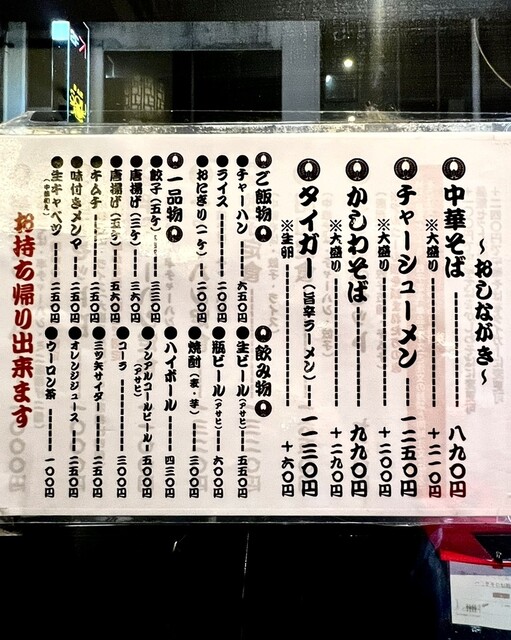 〜おしながき〜
中華そば 八九〇円
※大盛り ＋二一〇円
チャーシューメン 一二五〇円
※大盛り ＋二〇〇円
かしわそば 九九〇円
※大盛り ＋二九〇円
タイガー（旨辛ラーメン） 一一三〇円
※生卵 ＋六〇円
●ご飯物●
●チャーハン 六五〇円
●ライス 二〇〇円
●おにぎり（一ケ） 二〇〇円
●一品物●
●餃子（五ケ） 三三〇円
●唐揚げ（三ケ） 三六〇円
●唐揚げ（五ケ） 五六〇円
●キムチ 二五〇円
●味付きメンマ 二五〇円
●生キャベツ 二五〇円
●飲み物●
●生ビール（アサヒ） 五五〇円
●瓶ビール（アサヒ） 六〇〇円
●焼酎（麦・芋） 三〇〇円
●ハイボール 四三〇円
●ノンアルコールビール 五〇〇円
（アサヒ）
●コーラ 三〇〇円
●三ツ矢サイダー 二五〇円
●オレンジジュース 二五〇円
●ウーロン茶 一〇〇円
お持ち帰り出来ます